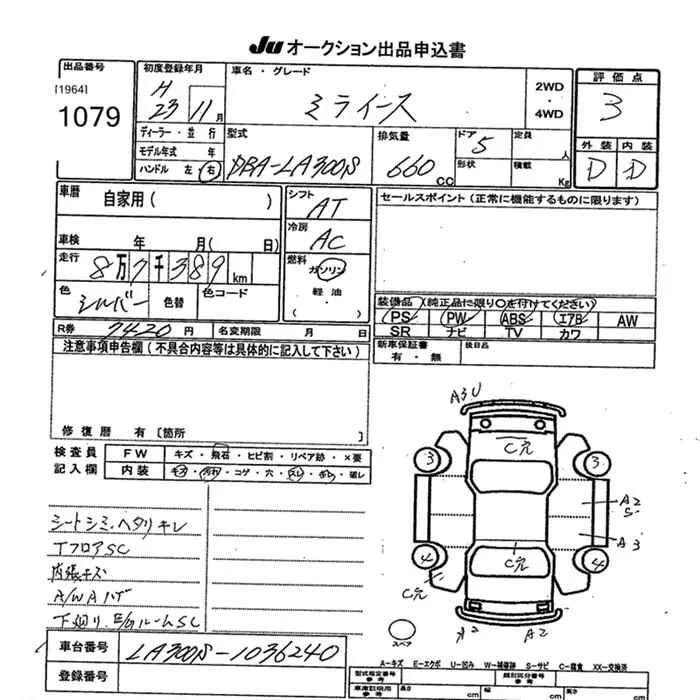 Ju オークション出品申込書
出品番号
[1964]
1079
初度登録年月
H
23 11月
ディーラー・並行
モデル年式 年
ハンドル 左・右
車名・グレード
ミライース
2WD
・
4WD
型式
DBA-LA300S
排気量
660 CC
ドア 5
形状
定員 人
積載 Kg
評価点
3
外装 内装
D D
車歴 自家用( )
車検 年 月( 日)
走行 8万7千389km
色 シルバー 色替 色コード
R券 7420円 名変期限 月 日
シフト
AT
冷房
AC
燃料
ガソリン
軽油・
( )
セールスポイント(正常に機能するものに限ります)
装備品(純正品に限り○を付けてください)
PS PW ABS エアB AW
SR ナビ TV カワ
新車保証書
有・無
後日品
注意事項申告欄(不具合内容等は具体的に記入して下さい)
修復歴 有〔箇所 〕
検査員
記入欄
FW キズ・飛石・ヒビ割・リペア跡・×要
内装 キズ・汚れ・コゲ・穴・スレ・ ・破レ
シートシミ、ヘタリキレ
TフロアSC
内張キズ
A/Wハゲ
下廻り、E/GルームSC
車台番号 LA300S-1036240
登録番号
A3U
C穴
3
3
A2
S
A3
C穴
4
4
C穴
A2
A2
スペア
A-キズ E-エクボ U-凹み W-補修跡 S-サビ C-腐食 XX-交換済
型式指定番号
参考
類別区分番号
参考
車庫証明用
参考
長さ cm 幅 cm 高さ cm